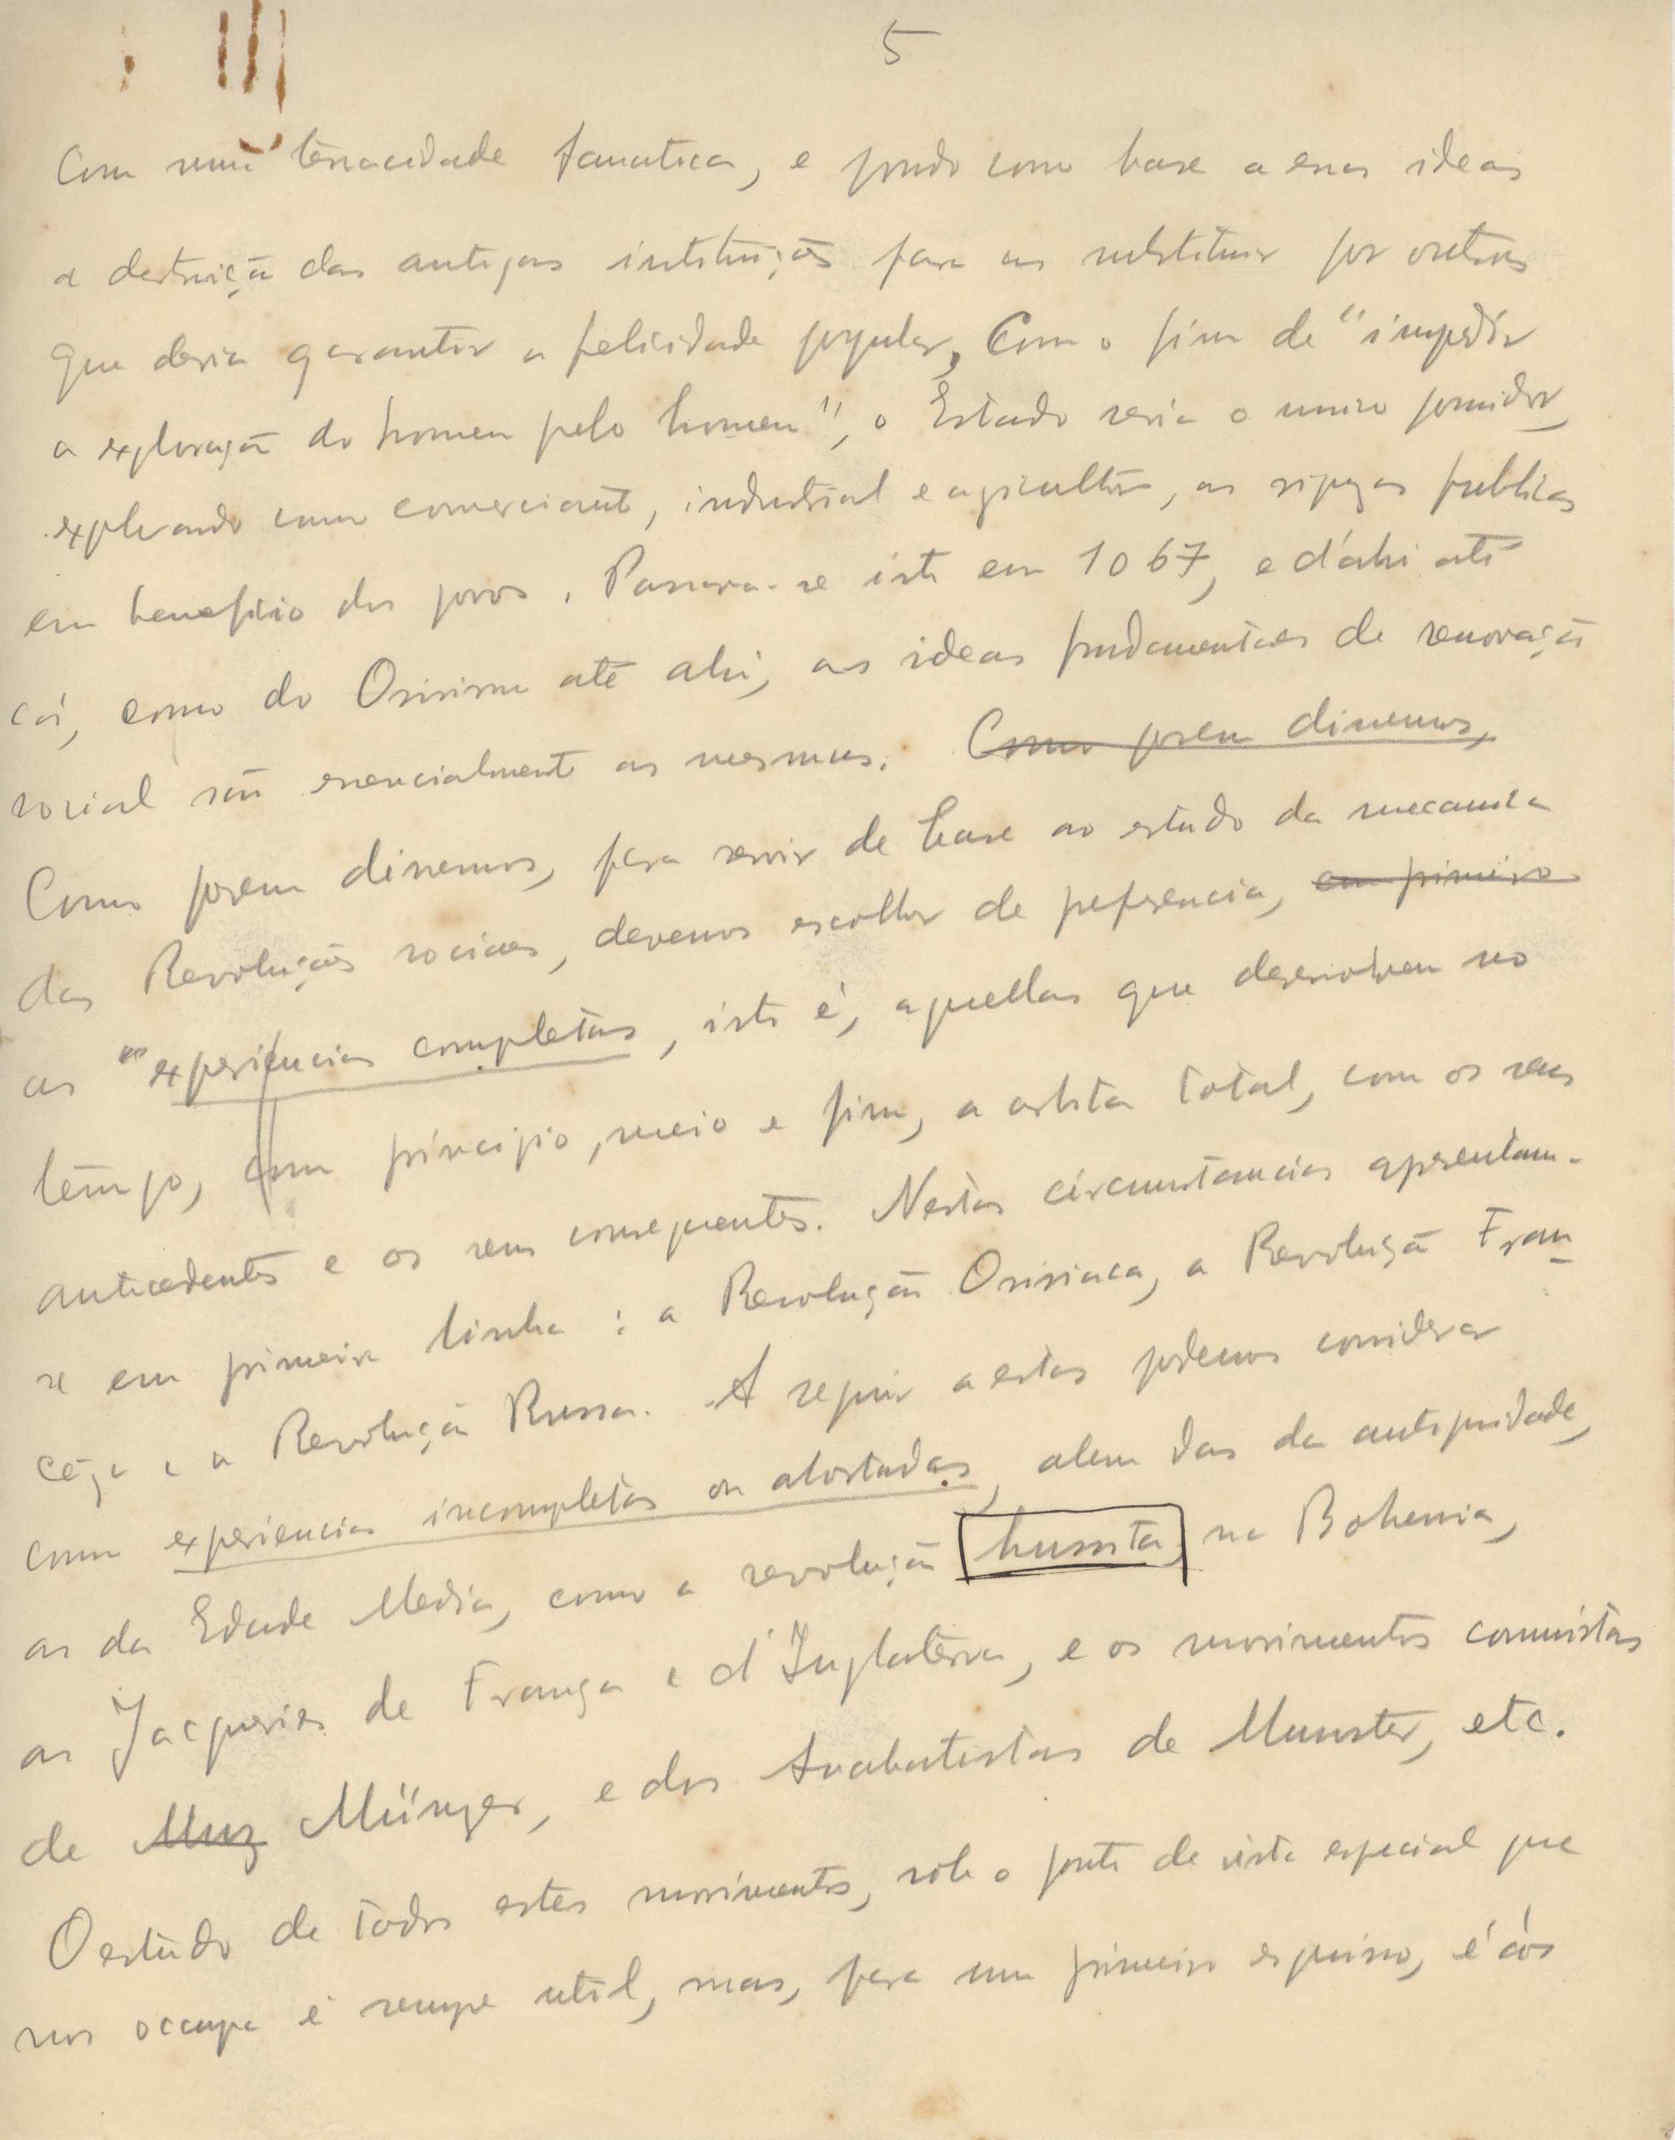 5
Com uma tenacidade fanatica, e pondo como base a essas ideas
a destruição das antigas instituições para as substituir por outras
que devia garantir a felicidade popular, Com o fim de "impedir
a exploração do homem pelo homem", o Estado seria o unico possuidor,
explorando como comerciante, industrial e agricultor, as riquezas publicas
em beneficio dos povos. Passava-se isto em 1067, e d'ahi até
cá, como do Osirismo até ahi, as ideas fundamentaes de renovação
social são essencialmente as mesmas. Como porem dissemos,
Como porem dissemos, para servir de base ao estudo da mecanica
das Revoluções sociaes, devemos escolher de preferencia, em primeiro
as "experiencias completas, isto é, aquellas que desenvolvem no
tempo, com principio, meio e fim, a orbita total, com os seus
antecedentes e os seus consequentes. Nestas circumstancias apresentam-
se em primeira linha: a Revolução Osiriaca, a Revolução Fran-
ceza e a Revolução Russa. A seguir a estas podemos considerar
como experiencias incompletas ou abortadas, alem das da antiguidade,
as da Edade Media, como a revolução hussita, na Bohemia,
as Jacqueries de França e d'Inglaterra, e os movimentos comunistas
de Muz Münzer, e dos Anabatistas de Munster, etc.
O estudo de todos estes movimentos, sob o ponto de vista especial que
nos occupa é sempre util, mas, para um primeiro esquisso, é aos